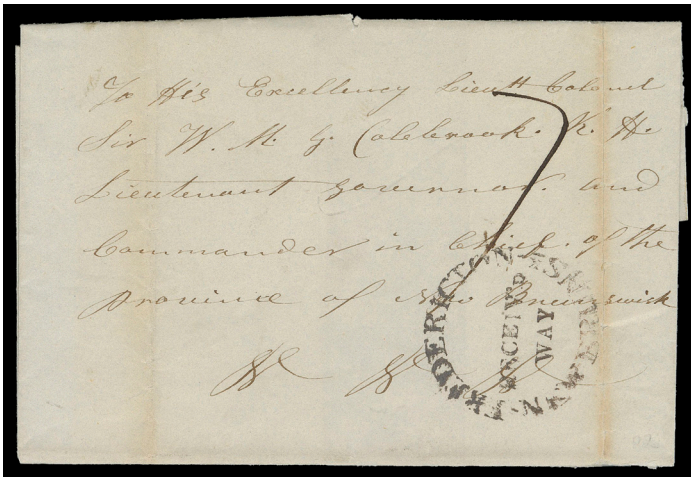 To His Excellency Lieutt Colonel
Sir W. M. G. Colebrook. K. H.
Lieutenant Governor. and
Commander in Chief. of the
Province of New Brunswick
7
FREDERICTON
NEW BRUNSWICK
RECEIVED
WAY